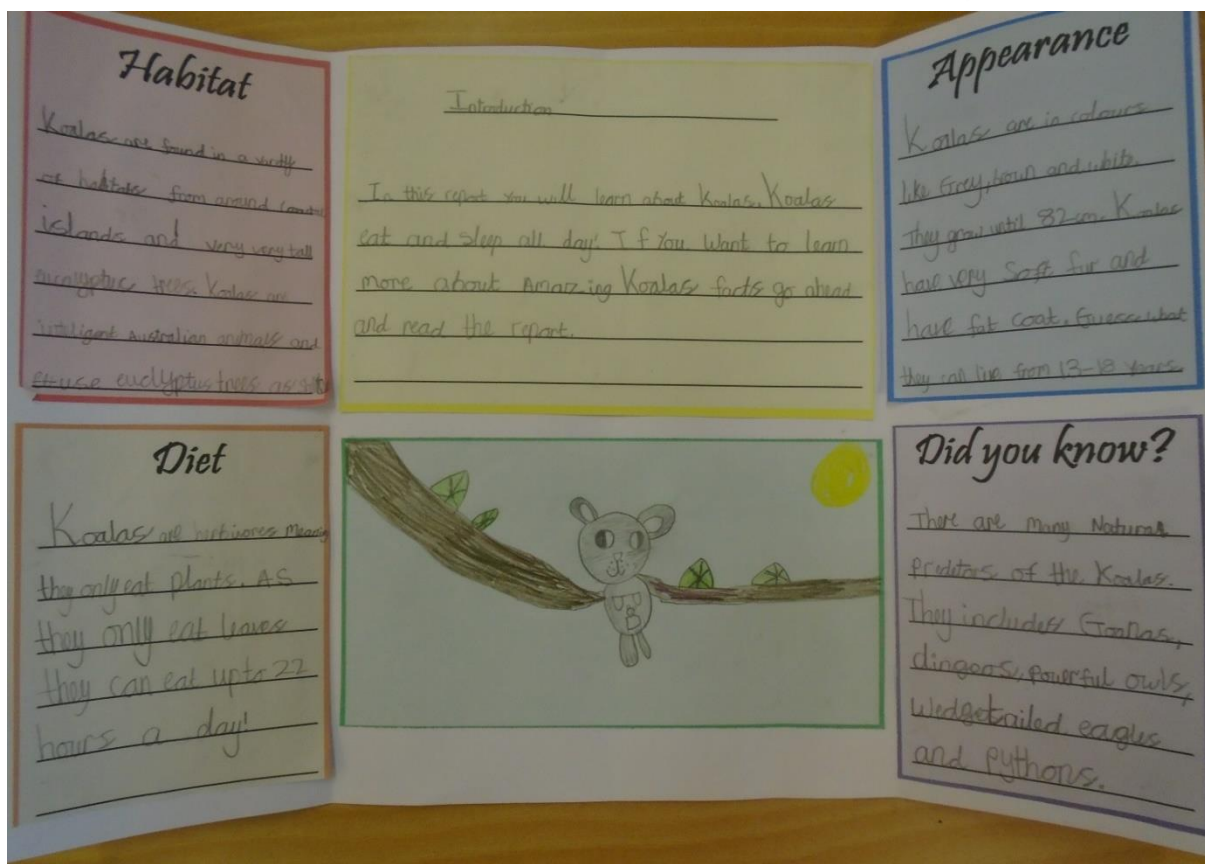 Habitat
Koalas are found in a
of habitats from around
islands and very very tall
trees. Koalas are
intelligent Australian animals and
use euclyptus trees as
Introduction
In this report you will learn about Koalas. Koalas
eat and sleep all day! If You Want to learn
more about Amazing Koalas facts go ahead
and read the report.
Appearance
Koalas are in colours
like Grey, brown and white.
They grow until 82 cm. Koalas
have very soft fur and
have fat coat. Guess what
they can live from 13-18 years
Diet
Koalas are herbivores Meaning
they only eat plants. AS
they only eat leaves
they can eat upto 22
hours a day!
Did you know?
There are many Natural
Preditors of the Koalas.
They includes Goanas,
dingoos, powerful owls,
wedgetailed eagles
and pythons.